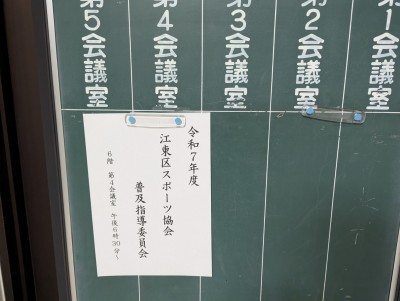 第1会議室
第2会議室
第3会議室
第4会議室
第5会議室
令和7年度
江東区スポーツ協会
普及指導委員会
6階 第4会議室 午後6時30分～